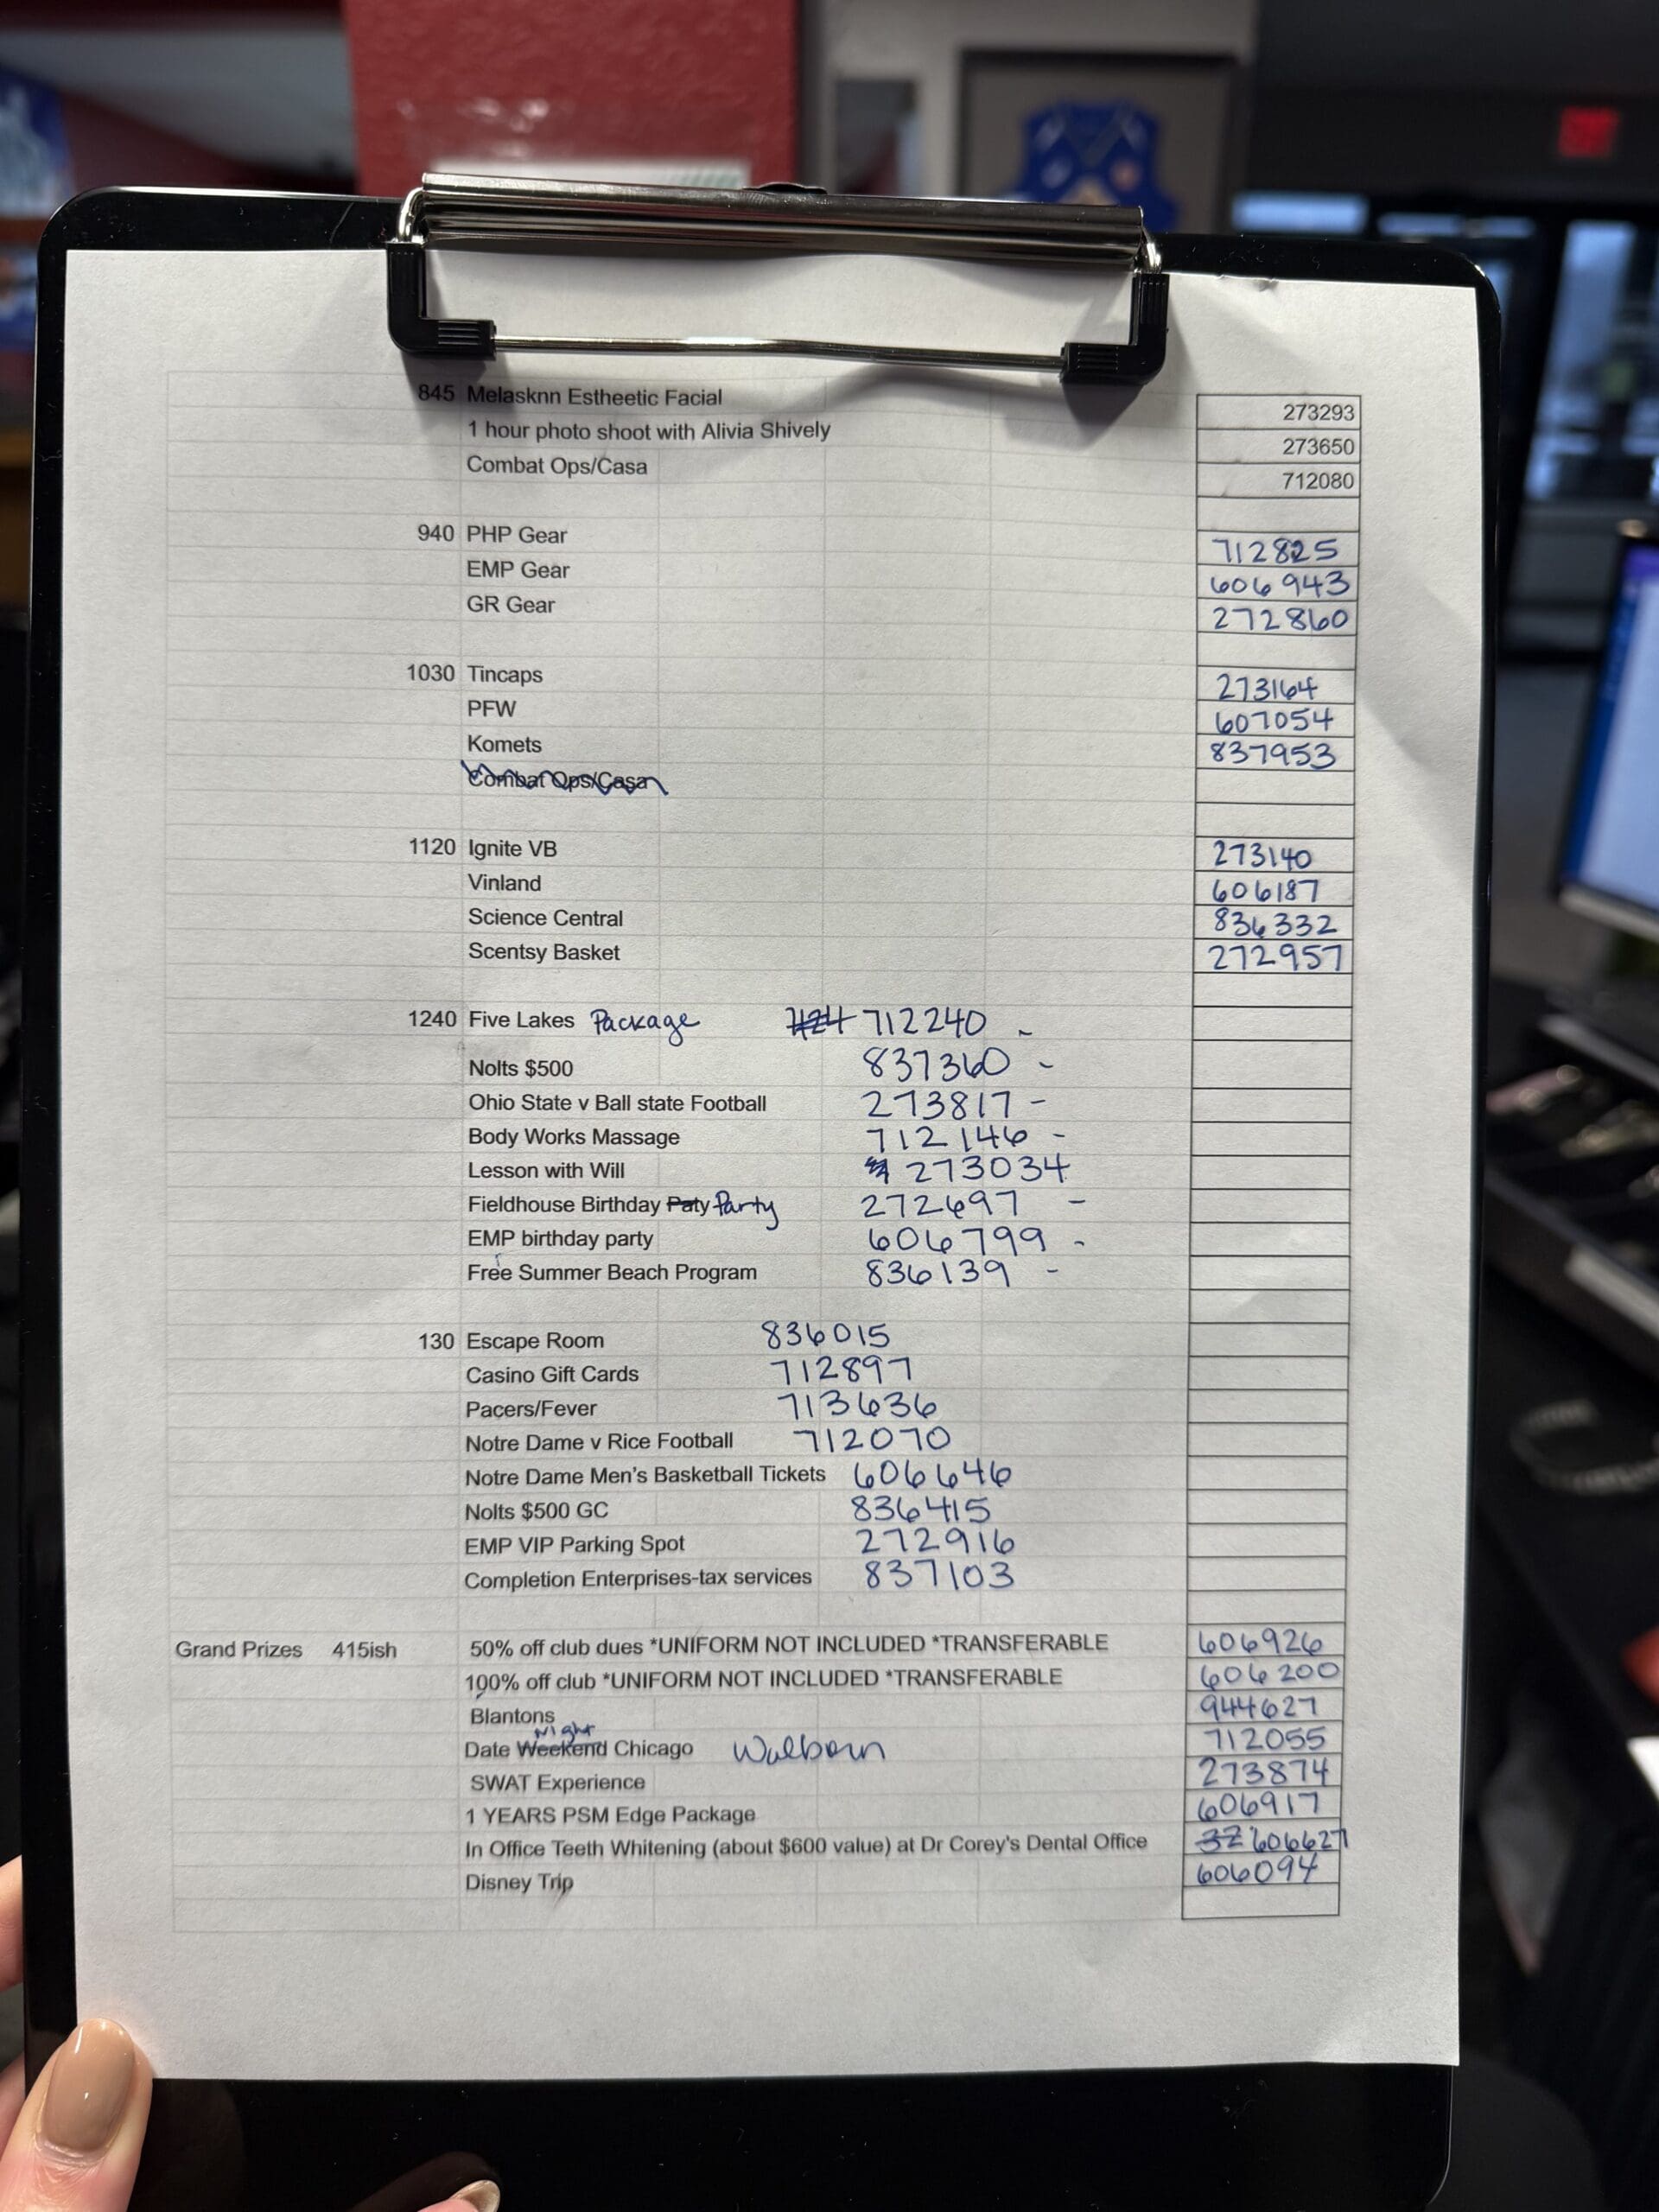 845 Melasknn Estheetic Facial 273293
1 hour photo shoot with Alivia Shively 273650
Combat Ops/Casa 712080
940 PHP Gear 712825
EMP Gear 606943
GR Gear 272860
1030 Tincaps 273164
PFW 607054
Komets 837953
Combat Ops/Casa
1120 Ignite VB 273140
Vinland 606187
Science Central 836332
Scentsy Basket 272957
1240 Five Lakes Package 712240 -
Nolts $500 837360 -
Ohio State v Ball state Football 273817 -
Body Works Massage 712146 -
Lesson with Will 273034
Fieldhouse Birthday Paty Party 272697 -
EMP birthday party 606799 -
Free Summer Beach Program 836139 -
130 Escape Room 836015
Casino Gift Cards 712897
Pacers/Fever 713636
Notre Dame v Rice Football 712070
Notre Dame Men's Basketball Tickets 606646
Nolts $500 GC 836415
EMP VIP Parking Spot 272916
Completion Enterprises-tax services 837103
Grand Prizes 415ish 50% off club dues *UNIFORM NOT INCLUDED *TRANSFERABLE 606926
100% off club *UNIFORM NOT INCLUDED *TRANSFERABLE 606200
Blantons 944627
Night
Date Weekend Chicago Walborn 712055
SWAT Experience 273874
1 YEARS PSM Edge Package 606917
In Office Teeth Whitening (about $600 value) at Dr Corey's Dental Office 37 606627
Disney Trip 606094